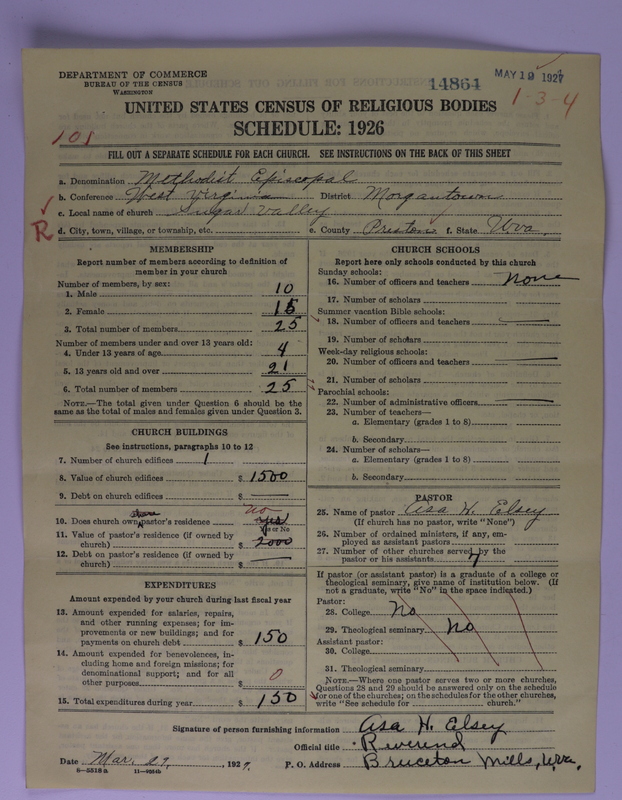 DEPARTMENT OF COMMERCE
BUREAU OF THE CENSUS
WASHINGTON
14864
MAY 12 1927
1-3-4
UNITED STATES CENSUS OF RELIGIOUS BODIES
SCHEDULE: 1926
101
FILL OUT A SEPARATE SCHEDULE FOR EACH CHURCH. SEE INSTRUCTIONS ON THE BACK OF THIS SHEET
a. Denomination Methodist Episcopal
b. Conference West Virginia District Morgantown
c. Local name of church Sugar Valley
R
d. City, town, village, or township, etc. e. County Preston f. State W.va.
MEMBERSHIP
Report number of members according to definition of member in your church
Number of members, by sex:
1. Male 10
2. Female 15
3. Total number of members 25
Number of members under and over 13 years old:
4. Under 13 years of age 4
5. 13 years old and over 21
6. Total number of members 25
NOTE.—The total given under Question 6 should be the
same as the total of males and females given under Question 3.
CHURCH BUILDINGS
See instructions, paragraphs 10 to 12
7. Number of church edifices 1
8. Value of church edifices $ 1500
9. Debt on church edifices $ —
10. Does church own pastor's residence no yes
Yes or No
11. Value of pastor's residence (if owned by
church) $ 2000
12. Debt on pastor's residence (if owned by
church) $ —
EXPENDITURES
Amount expended by your church during last fiscal year
13. Amount expended for salaries, repairs,
and other running expenses; for im-
provements or new buildings; and for
payments on church debt $ 150
14. Amount expended for benevolences, in-
cluding home and foreign missions; for
denominational support; and for all
other purposes $ 0
15. Total expenditures during year $ 150
CHURCH SCHOOLS
Report here only schools conducted by this church
Sunday schools:
16. Number of officers and teachers none
17. Number of scholars
Summer vacation Bible schools:
18. Number of officers and teachers —
19. Number of scholars
Week-day religious schools:
20. Number of officers and teachers —
21. Number of scholars
Parochial schools:
22. Number of administrative officers —
23. Number of teachers—
a. Elementary (grades 1 to 8)
b. Secondary
24. Number of scholars—
a. Elementary (grades 1 to 8)
b. Secondary
PASTOR
25. Name of pastor Asa H. Elsey
(If church has no pastor, write "None")
26. Number of ordained ministers, if any, em-
ployed as assistant pastors
27. Number of other churches served by the
pastor or his assistants 7
If pastor (or assistant pastor) is a graduate of a college or
theological seminary, give name of institution below. (If
not a graduate, write "No" in the space indicated.)
Pastor:
28. College No
29. Theological seminary No
Assistant pastor:
30. College
31. Theological seminary
NOTE.—Where one pastor serves two or more churches,
Questions 28 and 29 should be answered only on the schedule
for one of the churches; on the schedules for the other churches,
write "See schedule for church."
Signature of person furnishing information Asa H. Elsey
Official title Reverend
Date Mar. 27, 1927. P. O. Address Bruceton Mills, W.va.